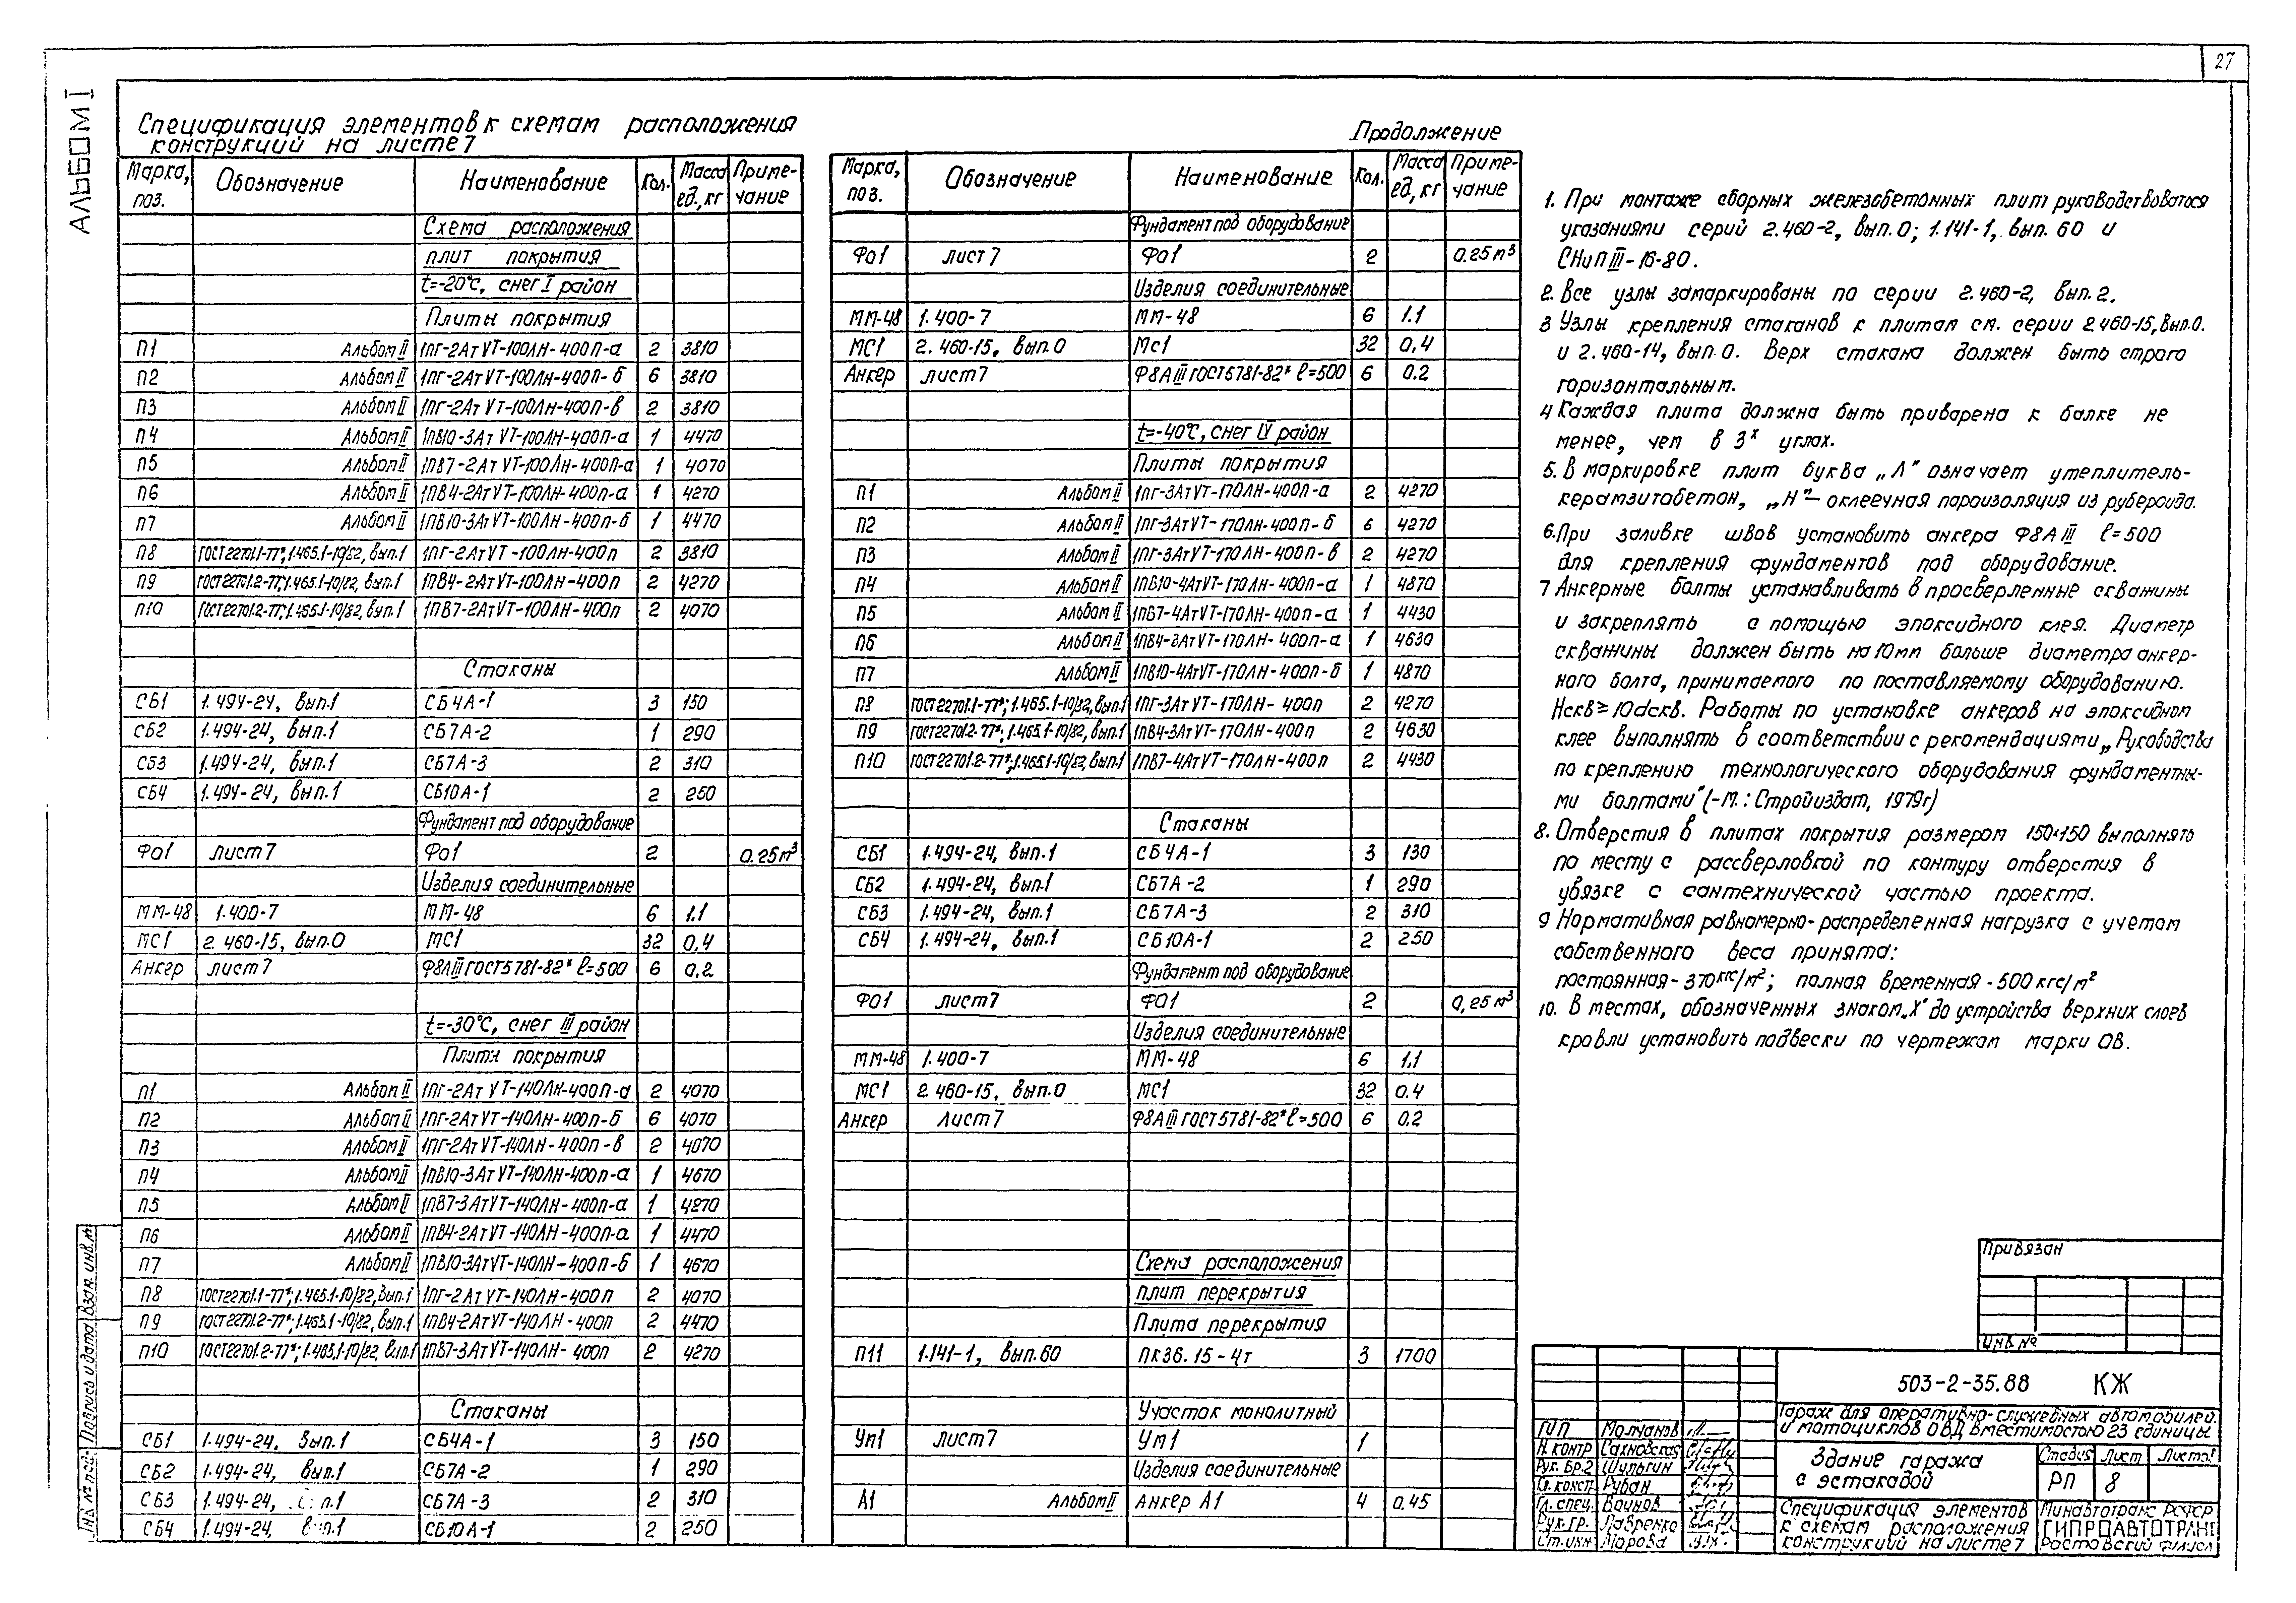 27
АЛЬБОМ I
Спецификация элементов к схемам расположения
конструкций на листе 7
Марка, поз. Обозначение Наименование Кол. Масса ед., кг Приме-чание
Схема расположения
плит покрытия
t=-20°С, снег I район
Плиты покрытия
П1 Альбом II 1ПГ-2АтVТ-100ЛН-400П-а 2 3810
П2 Альбом II 1ПГ-2АтVТ-100ЛН-400П-б 6 3810
П3 Альбом II 1ПГ-2АтVТ-100ЛН-400П-в 2 3810
П4 Альбом II 1ПВ10-3АтVТ-100ЛН-400П-а 1 4470
П5 Альбом II 1ПВ7-2АтVТ-100ЛН-400П-а 1 4070
П6 Альбом II 1ПВ4-2АтVТ-100ЛН-400П-а 1 4270
П7 Альбом II 1ПВ10-3АтVТ-100ЛН-400П-б 1 4470
П8 ГОСТ22701.1-77*; 1.465.1-10/82, вып.1 1ПГ-2АтVТ-100ЛН-400П 2 3810
П9 ГОСТ22701.2-77*; 1.465.1-10/82, вып.1 1ПВ4-2АтVТ-100ЛН-400П 2 4270
П10 ГОСТ22701.2-77*; 1.465.1-10/82, вып.1 1ПВ7-2АтVТ-100ЛН-400П 2 4070
Стаканы
СБ1 1.494-24, вып.1 СБ4А-1 3 150
СБ2 1.494-24, вып.1 СБ7А-2 1 290
СБ3 1.494-24, вып.1 СБ7А-3 2 310
СБ4 1.494-24, вып.1 СБ10А-1 2 250
Фундамент под оборудование
Фо1 лист 7 Фо1 2 0.25 м³
Изделия соединительные
ММ-48 1.400-7 ММ-48 6 1.1
МС1 2.460-15, вып.0 МС1 32 0,4
Анкер лист 7 Ф8АIII ГОСТ5781-82* ℓ=500 6 0.2
t=-30°С, снег III район
Плиты покрытия
П1 Альбом II 1ПГ-2АтVТ-140ЛН-400П-а 2 4070
П2 Альбом II 1ПГ-2АтVТ-140ЛН-400П-б 6 4070
П3 Альбом II 1ПГ-2АтVТ-140ЛН-400П-в 2 4070
П4 Альбом II 1ПВ10-3АтVТ-140ЛН-400П-а 1 4670
П5 Альбом II 1ПВ7-3АтVТ-140ЛН-400П-а 1 4270
П6 Альбом II 1ПВ4-2АтVТ-140ЛН-400П-а 1 4470
П7 Альбом II 1ПВ10-3АтVТ-140ЛН-400П-б 1 4670
П8 ГОСТ22701.1-77*; 1.465.1-10/82, вып.1 1ПГ-2АтVТ-140ЛН-400П 2 4070
П9 ГОСТ22701.2-77*; 1.465.1-10/82, вып.1 1ПВ4-2АтVТ-140ЛН-400П 2 4470
П10 ГОСТ22701.2-77*; 1.465.1-10/82, вып.1 1ПВ7-3АтVТ-140ЛН-400П 2 4270
Стаканы
СБ1 1.494-24, вып.1 СБ4А-1 3 150
СБ2 1.494-24, вып.1 СБ7А-2 1 290
СБ3 1.494-24, вып.1 СБ7А-3 2 310
СБ4 1.494-24, вып.1 СБ10А-1 2 250
Продолжение
Марка, поз. Обозначение Наименование Кол. Масса ед., кг Приме-чание
Фундамент под оборудование
Фо1 лист 7 Фо1 2 0.25 м³
Изделия соединительные
ММ-48 1.400-7 ММ-48 6 1.1
МС1 2.460-15, вып.0 Мс1 32 0,4
Анкер лист 7 Ф8АIII ГОСТ5781-82* ℓ=500 6 0.2
t=-40°С, снег IV район
Плиты покрытия
П1 Альбом II 1ПГ-3АтVТ-170ЛН-400П-а 2 4270
П2 Альбом II 1ПГ-3АтVТ-170ЛН-400П-б 6 4270
П3 Альбом II 1ПГ-3АтVТ-170ЛН-400П-в 2 4270
П4 Альбом II 1ПВ10-4АтVТ-170ЛН-400П-а 1 4870
П5 Альбом II 1ПВ7-4АтVТ-170ЛН-400П-а 1 4430
П6 Альбом II 1ПВ4-3АтVТ-170ЛН-400П-а 1 4630
П7 Альбом II 1ПВ10-4АтVТ-170ЛН-400П-б 1 4870
П8 ГОСТ22701.1-77*; 1.465.1-10/82, вып.1 1ПГ-3АтVТ-170ЛН-400П 2 4270
П9 ГОСТ22701.2-77*; 1.465.1-10/82, вып.1 1ПВ4-3АтVТ-170ЛН-400П 2 4630
П10 ГОСТ22701.2-77*; 1.465.1-10/82, вып.1 1ПВ7-4АтVТ-170ЛН-400П 2 4430
Стаканы
СБ1 1.494-24, вып.1 СБ4А-1 3 130
СБ2 1.494-24, вып.1 СБ7А-2 1 290
СБ3 1.494-24, вып.1 СБ7А-3 2 310
СБ4 1.494-24, вып.1 СБ10А-1 2 250
Фундамент под оборудование
ФО1 лист 7 ФО1 2 0,25 м³
Изделия соединительные
ММ-48 1.400-7 ММ-48 6 1,1
МС1 2.460-15, вып.0 МС1 32 0.4
Анкер Лист 7 Ф8АIII ГОСТ5781-82* ℓ=500 6 0.2
Схема расположения
плит перекрытия
Плита перекрытия
П11 1.141-1, вып.60 ПК36.15-4т 3 1700
Участок монолитный
Ум1 лист 7 Ум1 1
Изделия соединительные
А1 Альбом II Анкер А1 4 0.45
1. При монтаже сборных железобетонных плит руководствоваться
указаниями серий 2.460-2, вып.0; 1.141-1, вып. 60 и
СНиП III-16-80.
2. Все узлы замаркированы по серии 2.460-2, вып.2.
3 Узлы крепления стаканов к плитам см. серии 2.460-15, вып.0.
и 2.460-14, вып.0. Верх стакана должен быть строго
горизонтальным.
4 Каждая плита должна быть приварена к балке не
менее, чем в 3х углах.
5. В маркировке плит буква „Л" означает утеплитель-
керамзитобетон, „Н"- оклеечная пароизоляция из рубероида.
6. При заливке швов установить анкера Ф8АIII ℓ=500
для крепления фундаментов под оборудование.
7 Анкерные болты устанавливать в просверленные скважины
и закреплять с помощью эпоксидного клея. Диаметр
скважины должен быть на 10мм больше диаметра анкер-
ного болта, принимаемого по поставляемому оборудованию.
Нскв≥10dскв. Работы по установке анкеров на эпоксидном
клее выполнять в соответствии с рекомендациями „Руководства
по креплению технологического оборудования фундаментны-
ми болтами" (-М.: Стройиздат, 1979г)
8. Отверстия в плитах покрытия размером 150×150 выполнять
по месту с рассверловкой по контуру отверстия в
увязке с сантехнической частью проекта.
9 Нормативная равномерно-распределенная нагрузка с учетом
собственного веса принята:
постоянная-370кгс/м²; полная временная-500 кгс/м²
10. В местах, обозначенных знаком „Х" до устройства верхних слоев
кровли установить подвески по чертежам марки ОВ.
Привязан
Инв. №
503-2-35.88 КЖ
Гараж для оперативно-служебных автомобилей
и мотоциклов ОВД вместимостью 23 единицы
Здание гаража
с эстакадой
Стадия Лист Листов
РП 8
Спецификация элементов
к схемам расположения
конструкций на листе 7
Минавтотранс РСФСР
ГИПРОАВТОТРАНС
Ростовский филиал
ГИП Молчанов
Н. контр Сахновская
Рук. бр.2 Шульгин
Гл. конст. Рубан
Гл. спец. Воинов
Рук. гр. Лавренко
Ст. инж Морова
Инв. № под. Подпись и дата Взам. инв. №